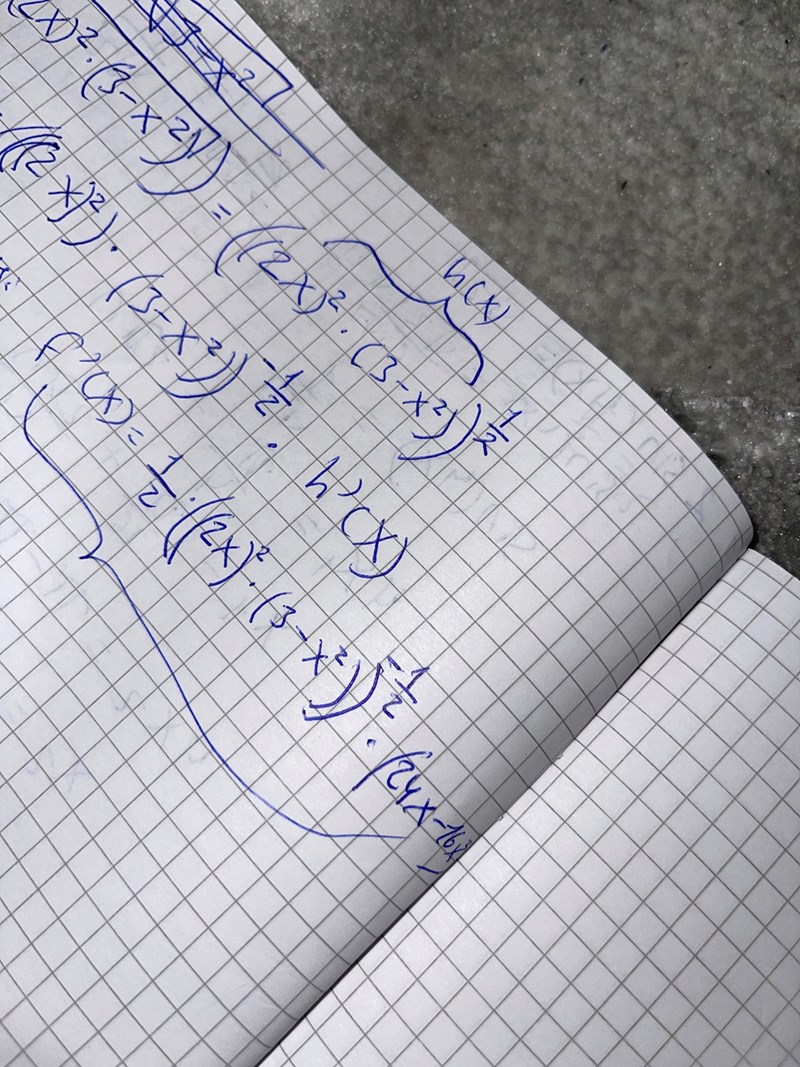 √3-x²
2x)²·(3-x²)) = ((2x)²·(3-x²))^½
h(x)
((2x)²)·(3-x²))^-½ · h'(x)
f'(x) = ½·((2x)²·(3-x²))^-½ · (24x-16x³)